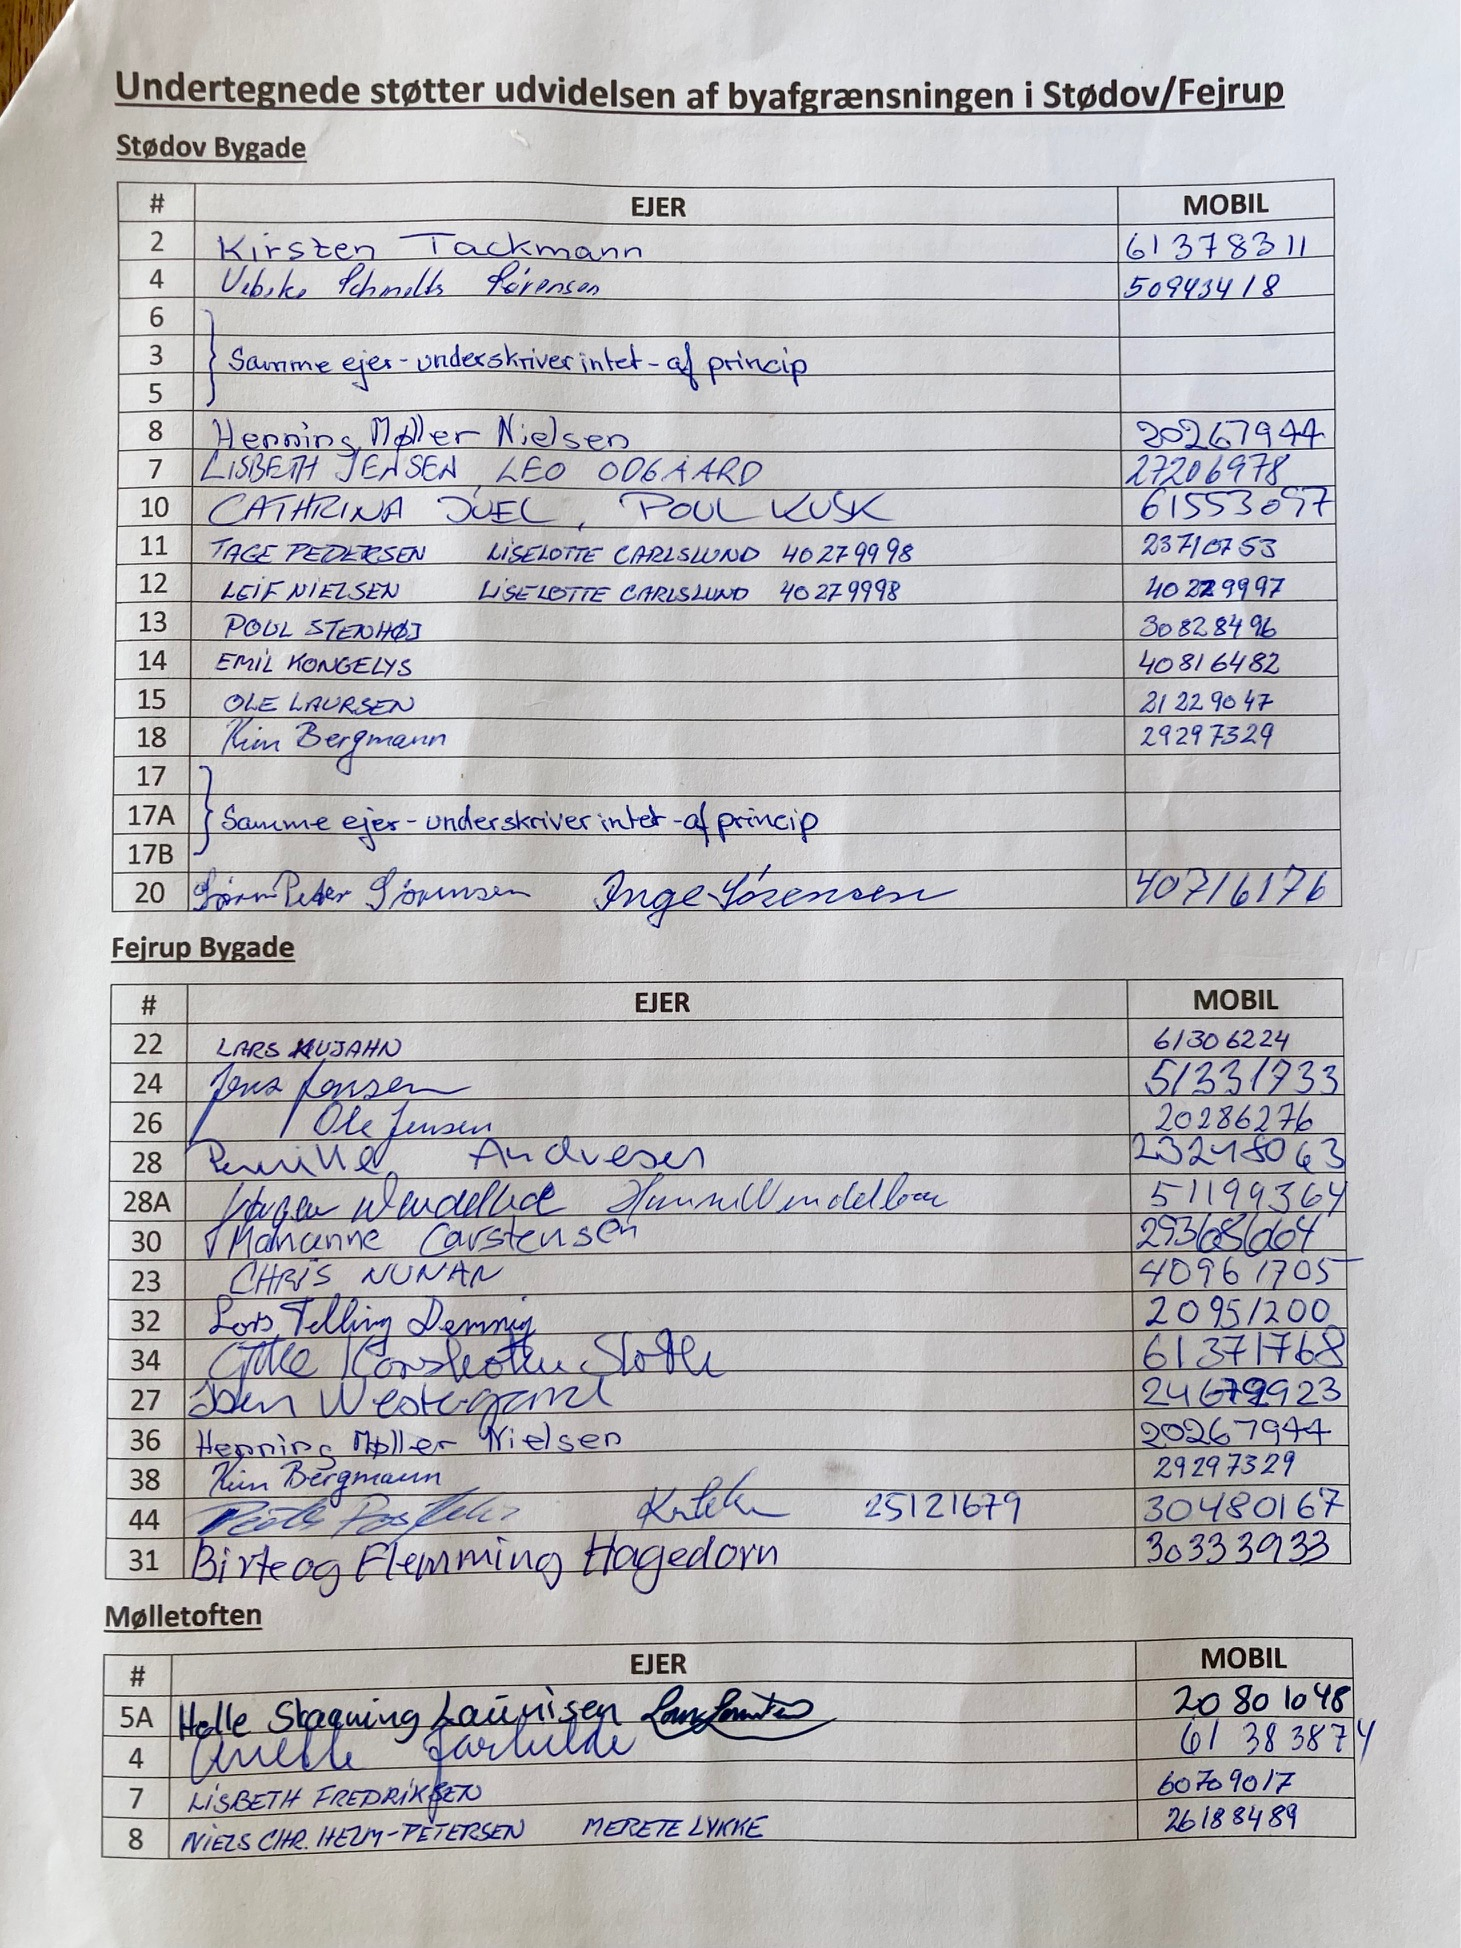 Undertegnede støtter udvidelsen af byafgrænsningen i Stødov/Fejrup
Stødov Bygade
# EJER MOBIL
2 Kirsten Tackmann 61378311
4 Vibeke Schmelts Sørensen 50943418
6
3 Samme ejer - underskriver intet - af princip
5
8 Henning Møller Nielsen 20267944
7 LISBETH JENSEN LEO ODGAARD 27206978
10 CATHRINA JUEL, POUL KUSK 61553097
11 TAGE PEDERSEN LISELOTTE CARLSLUND 40279998 23710753
12 LEIF NIELSEN LISELOTTE CARLSLUND 40279998 40279997
13 POUL STENHØJ 30828496
14 EMIL KONGELYS 40816482
15 OLE LAURSEN 21229047
18 Kim Bergmann 29297329
17
17A Samme ejer - underskriver intet - af princip
17B
20 Søren Peter Sørensen Inge Sørensen 40716176
Fejrup Bygade
# EJER MOBIL
22 LARS KUJAHN 61306224
24 Jens Jensen 51331733
26 Ole Jensen 20286276
28 Pernille Andresen
28A Jørgen Wendelboe Hanne Wendelboe 51199364
30 Marianne Carstensen
23 CHRIS NUNAN 40961705
32 Lars Telling Demnig 20951200
34 Sloth 61371768
27 Westergaard
36 Henning Møller Nielsen 20267944
38 Kim Bergmann 29297329
44 25121679 30480167
31 Birte og Flemming Hagedorn 30333933
Mølletoften
# EJER MOBIL
5A Helle Stagning Lauritsen 20801048
4 61383874
7 LISBETH FREDRIKSEN 60709017
8 NIELS CHR. HELM-PETERSEN MERETE LYKKE 26188489